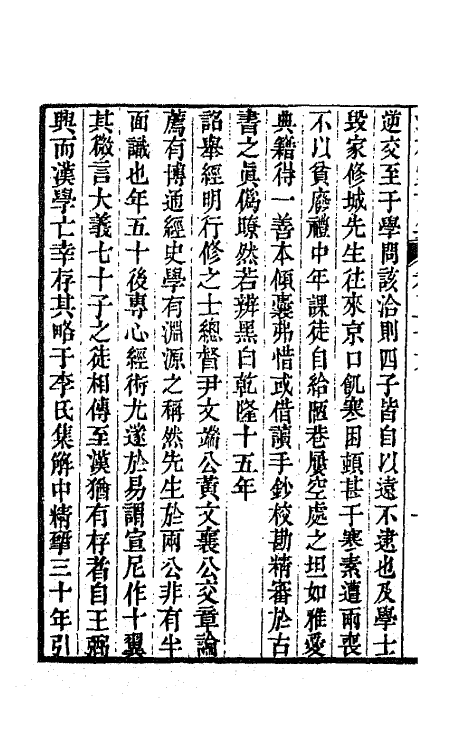 逆交至于學問該洽則四子皆自以遠不逮也及學士
毀家修城先生往來京口飢寒困頓甚于寒素遭兩喪
不以貧廢禮中年課徒自給陋巷屢空處之坦如雅愛
典籍得一善本傾囊弗惜或借讀手鈔校勘精審於古
書之眞僞瞭然若辨黑白乾隆十五年
詔舉經明行修之士總督尹文端公黃文襄公交章論
薦有博通經史學有淵源之稱然先生於兩公非有半
面識也年五十後專心經術尤邃於易謂宣尼作十翼
其微言大義七十子之徒相傳至漢猶有存者自王弼
興而漢學亡幸存其略于李氏集解中精擘三十年引